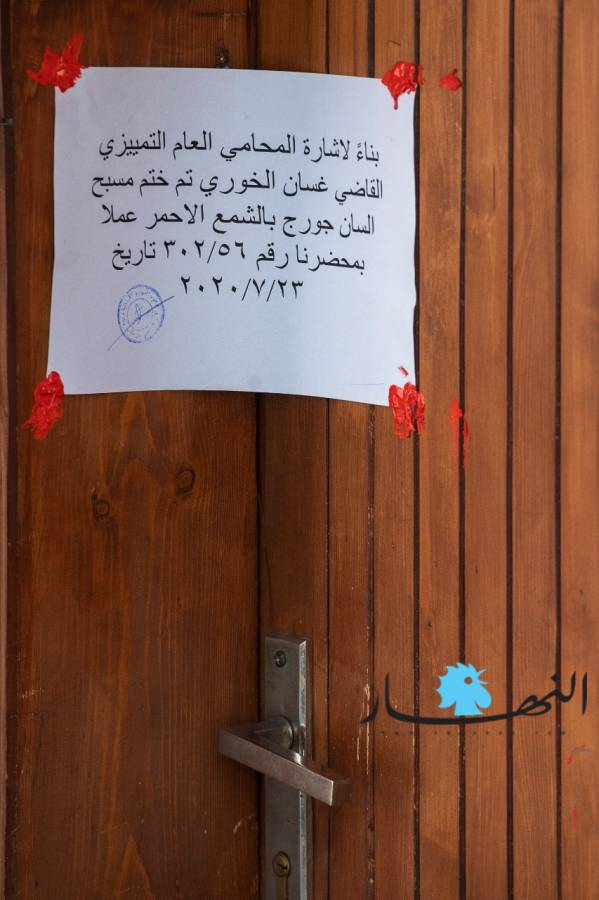 بناءً لاشارة المحامي العام التمييزي
القاضي غسان الخوري تم ختم مسبح
السان جورج بالشمع الاحمر عملا
بمحضرنا رقم ٣٠٢/٥٦ تاريخ
٢٠٢٠/٧/٢٣
النهار